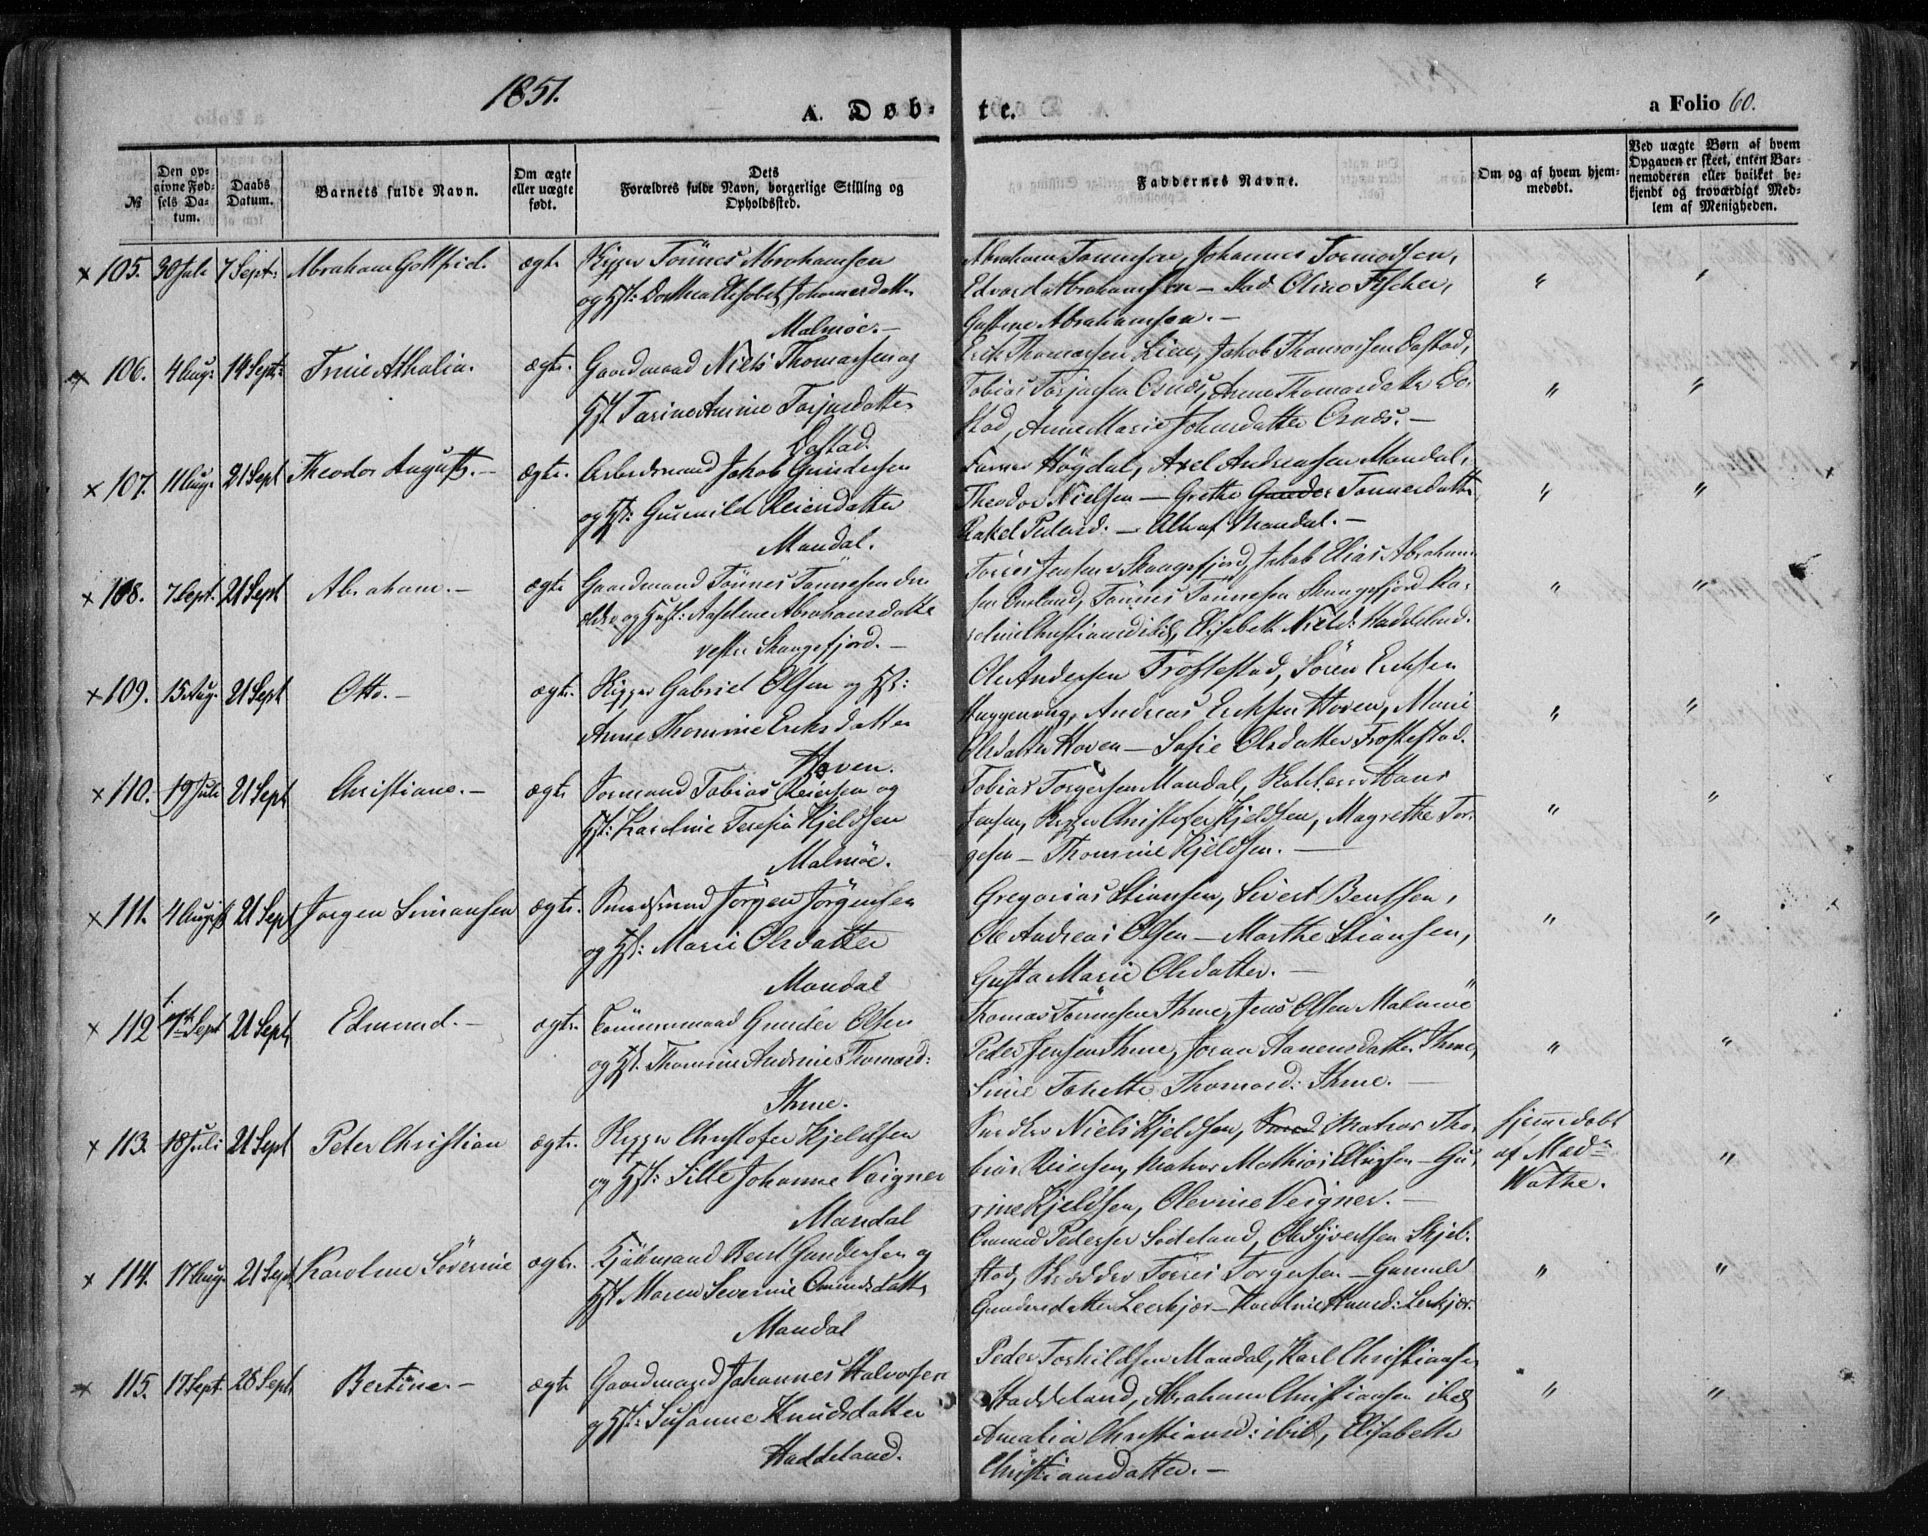 1851.
A. Døb-te.
a Folio 60.
№
Den op-
givne Fød-
sels Da-
tum.
Daabs
Datum.
Barnets fulde Navn.
Om ægte
eller uægte
født.
Dets
Forældres fulde Navn, borgerlige Stilling og
Opholdssted.
Faddernes Navne.
Om og af hvem hjem-
medøbt.
Ved uægte Børn af hvem
Opgaven er skeet, enten Bar-
nemoderen eller hvilket be-
kjendt og troværdigt Med-
lem af Menigheden.
× 105. 30 Juli 7 Sept: Abraham Gottfrid. ægte Skipper Tönnes Abrahamsen
og Hst: Dorthea Elisabet Johannesdatter
Malmöe.-
Abraham Tønnesen, Johannes Tormodsen,
Edvard Abrahamsen - Mad. Oline Fischer,
Gustine Abrahamsen.-
× 106. 4 Aug: 14 Sept: Trine Athalia. ægte. Gaardmand Niels Thomassen og
Hst Tarine Amine Torjusdatter
Dostad.
Erik Thomassen Lien, Jakob Thomassen Dostad,
Tobias Torjusen Osnes, Anne Thomasdatter Do-
stad, Anne Marie Johnsdatter Osnes.-
× 107. 11 Aug: 21 Sept Theodor August.- ægte. Arbeidsmand Jakob Gundersen
og Hst: Gunvild Reiersdatter
Mandal.
Högdal, Axel Andreassen Mandal,
Theodor Nielsen - Grethe Tønnesdatter
Rakel Pedersd: - Alle af Mandal.-
× 108. 7 Sept. 21 Sept Abraham.- ægte Gaardmand Tönnes Tönnesen den
ældre og Hust: Aaselene Abrahamsdatter
vestre Skaugefjord.-
Torres Jensen Skaugefjord, Jakob Elias Abraham-
sen, Tönnes Tønnesen Skaugefjord, Ka-
roline Christiansd: ibid, Elisabeth Nielsd: Haddeland.
× 109. 15 Aug. 21 Sept Otto.- ægte. Skipper Gabriel Olsen og Hst:
Anne Thomine Eriksdatter
Hoven.
Ole Andersen Frøstestad, Sören Eriksen
Andreas Eriksen Hoven, Marie
Olsdatter Hoven - Sofie Olsdatter Frøstestad.
× 110. 19 Juli 21 Sept Christiane.- ægte Formand Tobias Reiersen og
Hst: Karoline Teresia Kjeldsen
Malmöe.
Tobias Torgersen Mandal, Hans
Jensen, Skipper Christofer Kjeldsen, Magrethe Tor-
gesen - Thomine Kjeldsen.-
× 111. 4 August 21 Sept Jørgen Simonsen ægte. Jörgen Jörgensen
og Hst: Marie Olsdatter
Mandal
Gregorius Stiansen, Sivert Bentsen,
Ole Andreas Olsen - Marthe Stiansen,
Gusta Marie Olsdatter.-
× 112 1ste Sept 21 Sept Edmund.- ægte. Tömmermand Gunder Olsen
og Hst. Thomine Andrine Thomasd:
Ihme.
Thomas Tønnesen Ihme, Jens Olsen Malmöe
Peder Jensen Ihme, Joran Aanensdatter Ihme,
Sine Tobette Thomasd: Ihme.-
× 113. 18 Juli 21 Sept Peter Christian ægte. Skipper Christofer Kjeldsen
og Hst: Sille Johanne Veigner
Mandal
Snedker Niels Kjeldsen, Matros Tho-
bias Reiersen, Matros Mathias - Gu-
rine Kjeldsen, Olevine Veigner.-
hjemmedøbt
af Mad
Wathe.
× 114. 17 Aug. 21 Sept Karoline Söverine ægte. Kjöbmand Bent Gundersen og
Hst Maren Severine Omundsdatter
Mandal
Omund Pedersen Sodeland, Ole Syvertsen Skjel-
stad, Skrædder Torres Torgersen - Gunnild
Gundersdatter Leerkjær - Karoline Leerkjær.
× 115. 17 Sept. 28 Sept Bertine.- ægte Gaardmand Johannes Halvorsen
og Hst: Susanne Knudsdatter
Haddeland.
Peder Torkildsen Mandal, Karl Christiansen
Haddeland, Abraham Christiansen ibid
Amalia Christiansd: ibid, Elisabeth
Christiansdatter.-